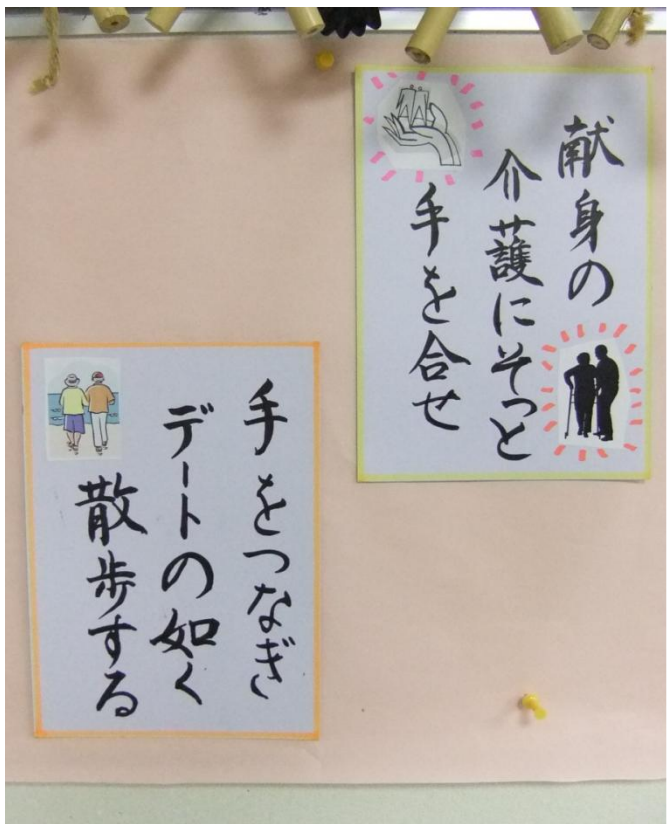 献身の
介護にそっと
手を合せ
手をつなぎ
デートの如く
散歩する